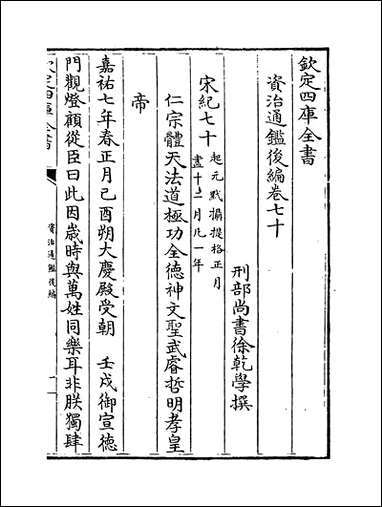 欽定四庫全書
資治通鑑後編卷七十
刑部尚書徐乾學撰
宋紀七十
起元黓攝提格正月
盡十二月凡一年
仁宗體天法道極功全德神文聖武睿哲明孝皇
帝
嘉祐七年春正月己酉朔大慶殿受朝　壬戌御宣德
門觀燈顧從臣曰此因歲時與萬姓同樂耳非朕獨肆
欽定四庫全書
資治通鑑後編
一